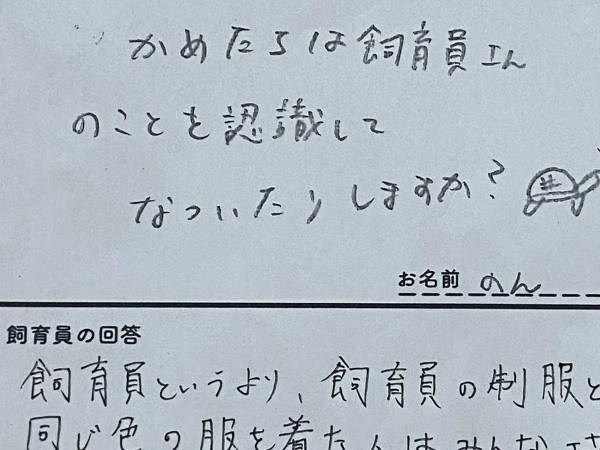 かめたろは飼育員さん
のことを認識して
なついたりしますか?
お名前 のん
飼育員の回答
飼育員というより、飼育員の制服と
同じ色の服を着た人はみんな